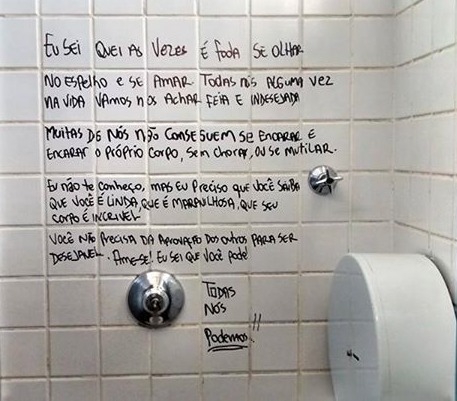 Eu sei quei as vezes é foda se olhar
no espelho e se amar. Todas nós alguma vez
na vida vamos nos achar feia e indesejada
Muitas de nós não conseguem se encarar e
encarar o próprio corpo, sem chorar, ou se mutilar.
Eu não te conheço, mas eu preciso que você saiba
que você é linda, que é maravilhosa, que seu
corpo é incrível
Você não precisa da aprovação dos outros para ser
desejável. Ame-se! Eu sei que você pode!
Todas
nós
Podemos!!